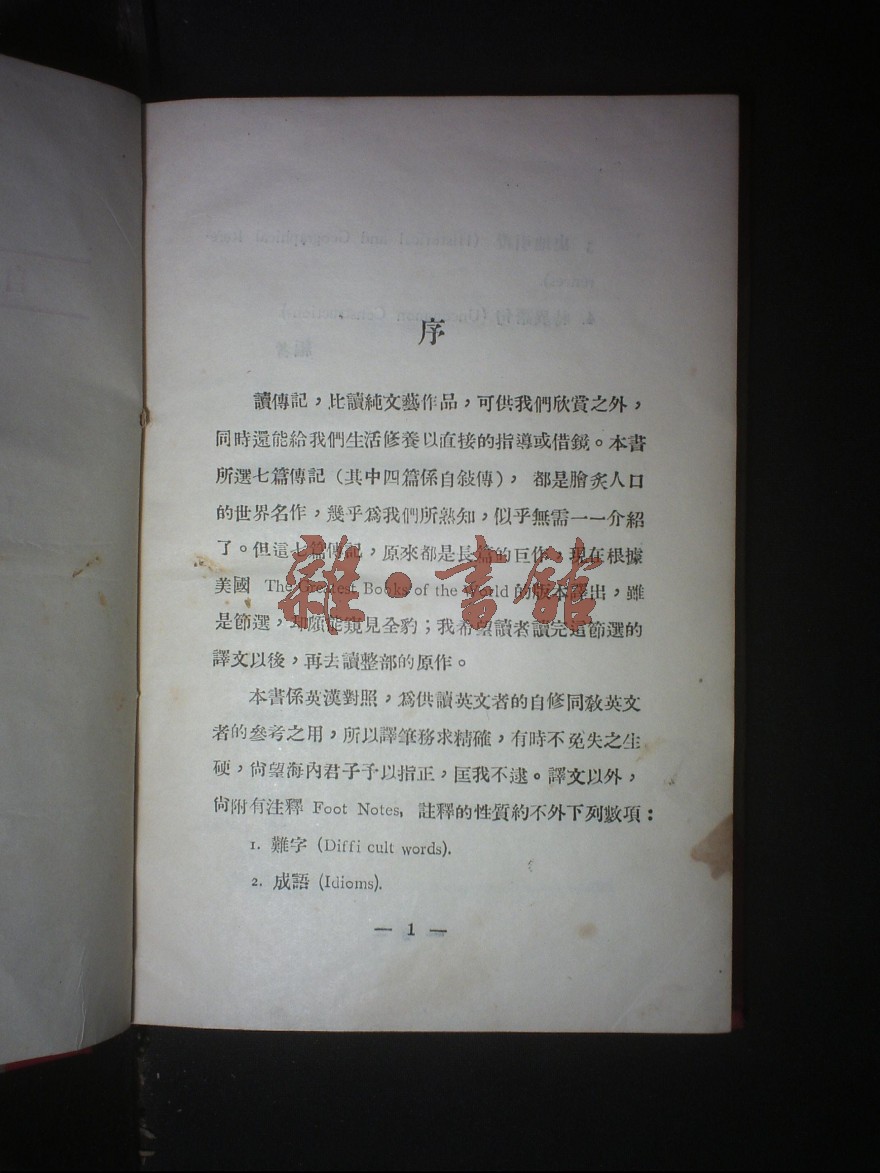 序
讀傳記，比讀純文藝作品，可供我們欣賞之外，
同時還能給我們生活修養以直接的指導或借鏡。本書
所選七篇傳記（其中四篇係自敍傳），都是膾炙人口
的世界名作，幾乎爲我們所熟知，似乎無需一一介紹
了。但這七篇傳記，原來都是長篇的巨作，現在根據
美國 The Greatest Books of the World 的版本譯出，雖
是節選，却頗能窺見全豹；我希望讀者讀完這節選的
譯文以後，再去讀整部的原作。
本書係英漢對照，爲供讀英文者的自修同敎英文
者的參考之用，所以譯筆務求精確，有時不免失之生
硬，尙望海內君子予以指正，匡我不逮。譯文以外，
尙附有注釋 Foot Notes, 註釋的性質約不外下列數項：
1. 難字 (Diffi cult words).
2. 成語 (Idioms).
— 1 —
雜·書館